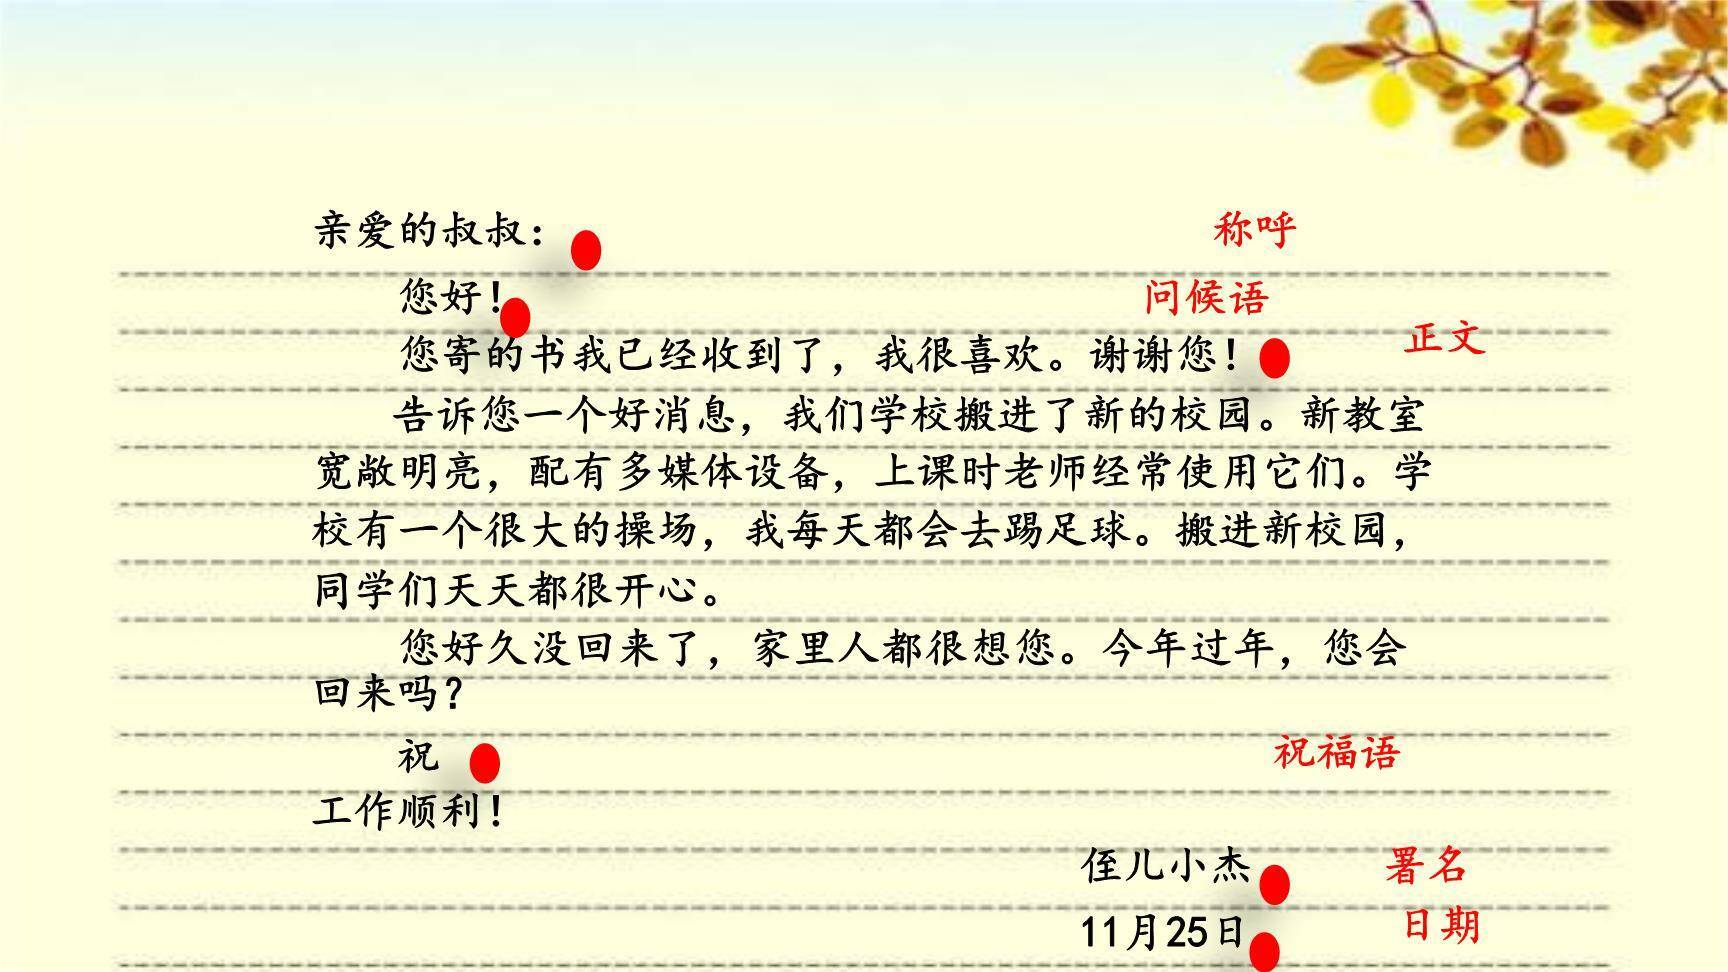 亲爱的叔叔： 称呼
您好！ 问候语
您寄的书我已经收到了，我很喜欢。谢谢您！ 正文
告诉您一个好消息，我们学校搬进了新的校园。新教室
宽敞明亮，配有多媒体设备，上课时老师经常使用它们。学
校有一个很大的操场，我每天都会去踢足球。搬进新校园，
同学们天天都很开心。
您好久没回来了，家里人都很想您。今年过年，您会
回来吗？
祝 祝福语
工作顺利！
侄儿小杰 署名
11月25日 日期